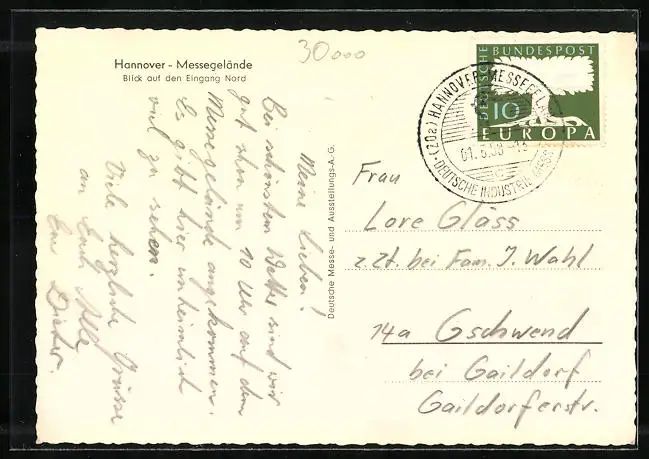 30000
Hannover - Messegelände
Blick auf den Eingang Nord
Meine Lieben!
Bei schönstem Wetter sind wir
gut schon um 10 Uhr auf dem
Messegelände angekommen.
Es gibt hier unheimlich
viel zu sehen.
Viele herzliche Grüsse
an Euch Alle
Dieter.
Deutsche Messe- und Ausstellungs-A.-G.
DEUTSCHE BUNDESPOST
10
EUROPA
(20a) HANNOVER-MESSEGELÄ
DEUTSCHE INDUSTRIE-MESSE
Frau
Lore Gläss
z.Zt. bei Fam. J. Wahl
14a Gschwend
bei Gaildorf
Gaildorferstr.